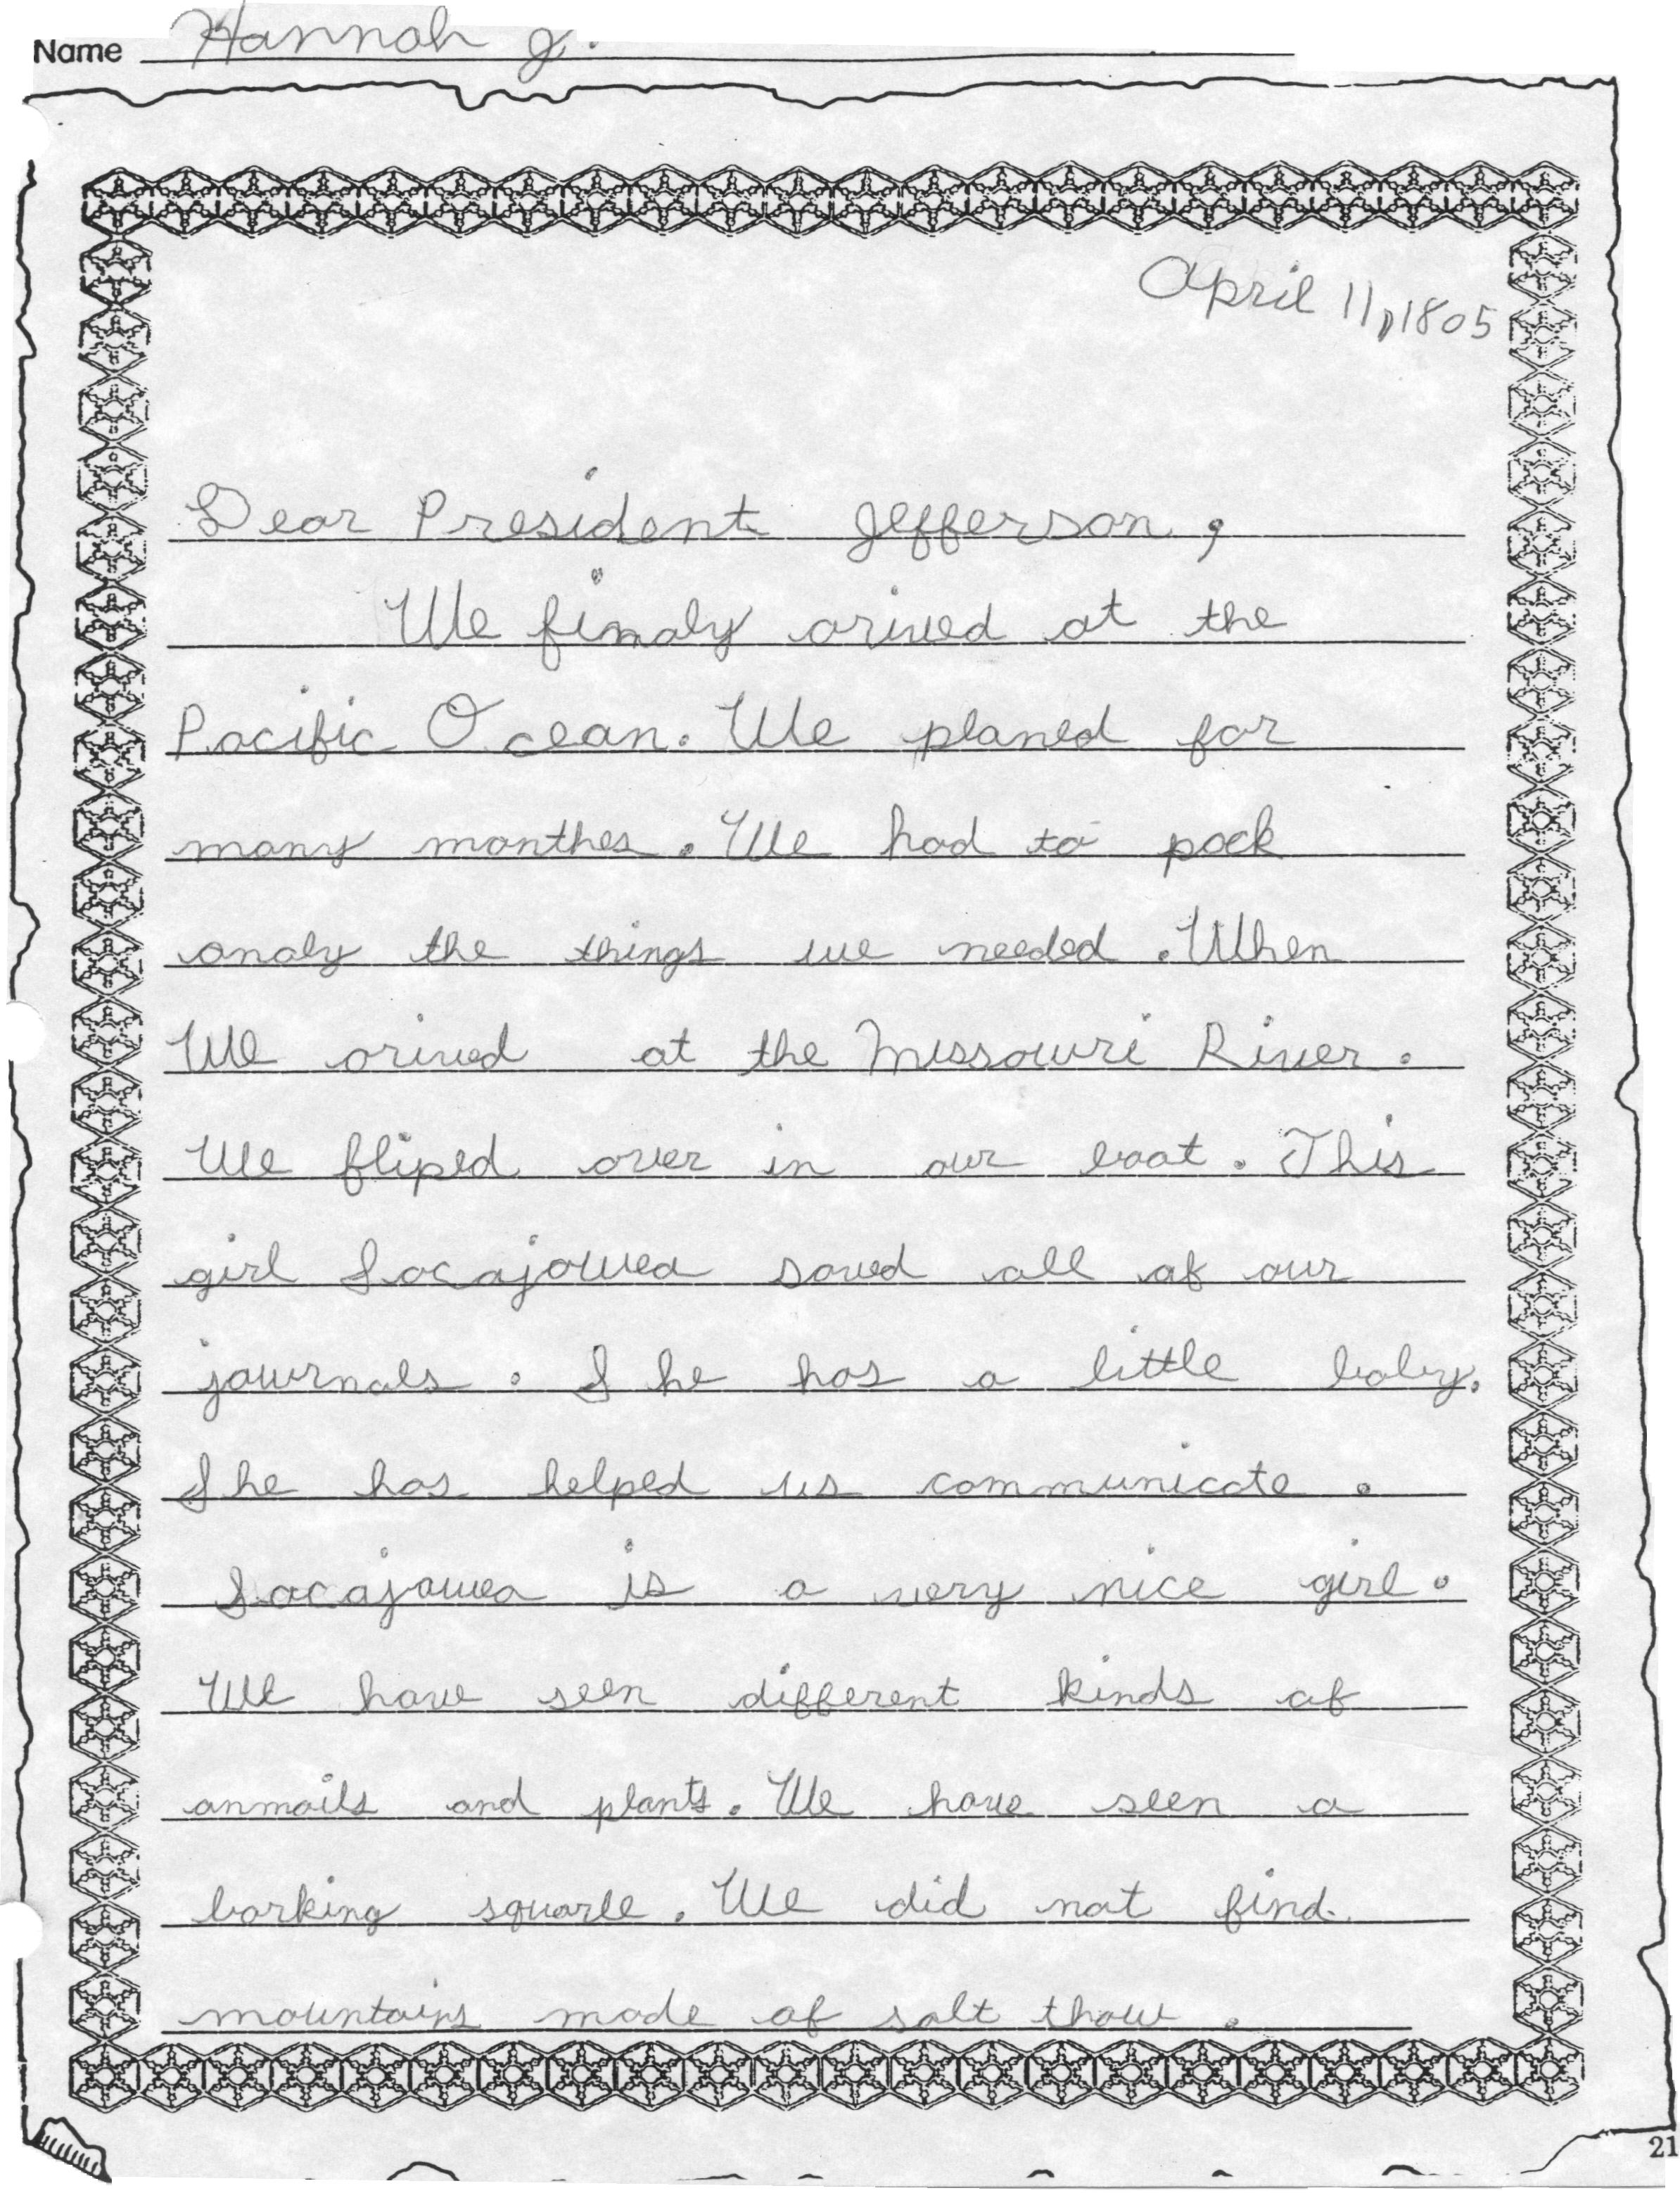 Name Hannah J.
April 11, 1805
Dear President Jefferson,
We finaly arived at the
Pacific Ocean. We planed for
many monthes. We had to pack
onaly the things we needed. When
We arived at the Missouri River.
We fliped over in our boat. This
girl Sacajawea saved all of our
journals. She has a little baby.
She has helped us communicate.
Sacajawea is a very nice girl.
We have seen different kinds of
anmails and plants. We have seen a
barking squarle. We did not find
mountains made of salt thow.
21